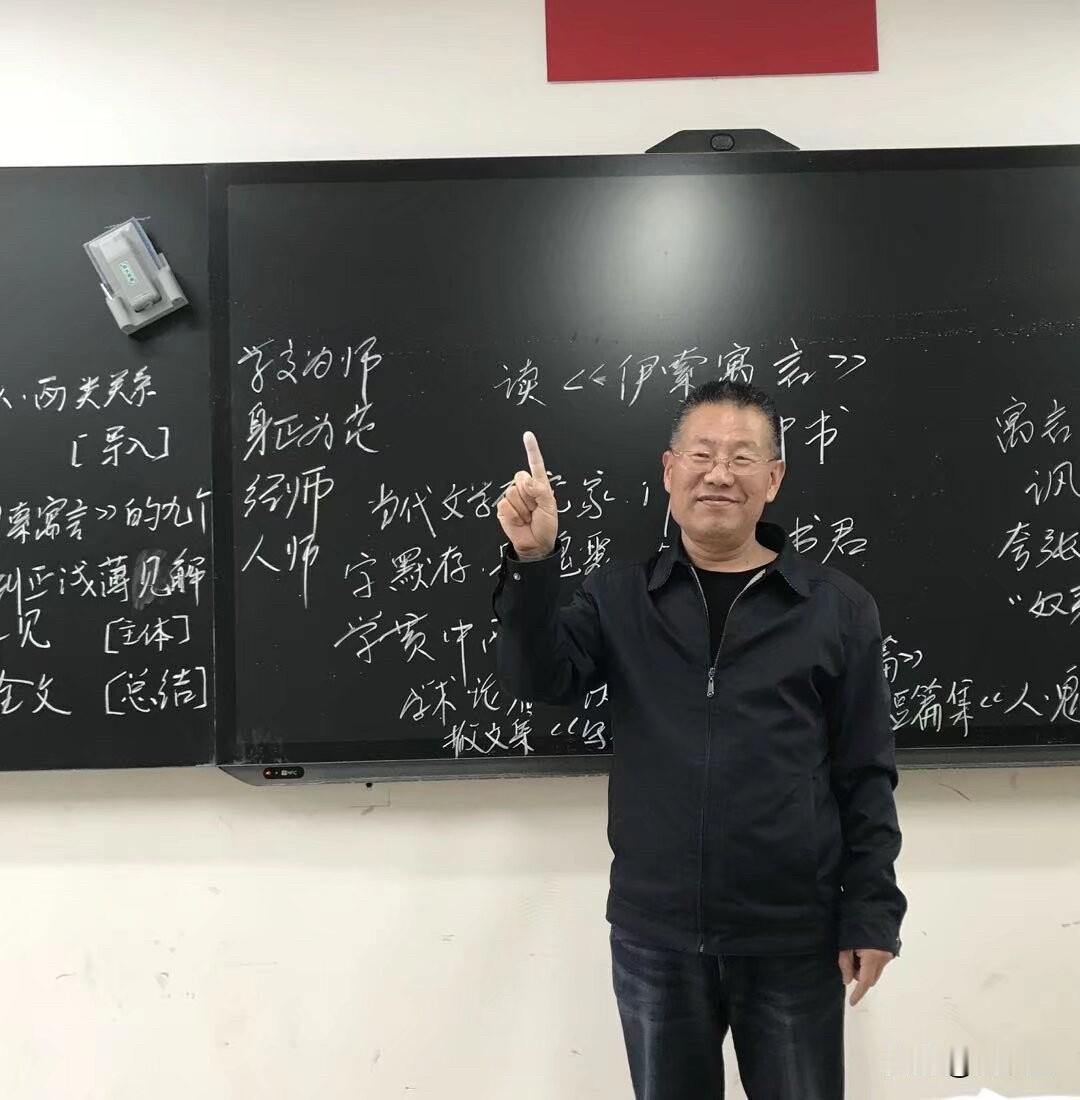 两类关系
[导入]
索寓言》的九个
纠正浅薄见解
见 [主体]
全文 [总结]
学文为师
身正为范
经师
人师
读《伊索寓言》
中书
当代文学 家
字默存
书君
学贯中西
学术论
篇》
散文集《写
短篇集《人·鬼
寓言
讽
夸张
"奴